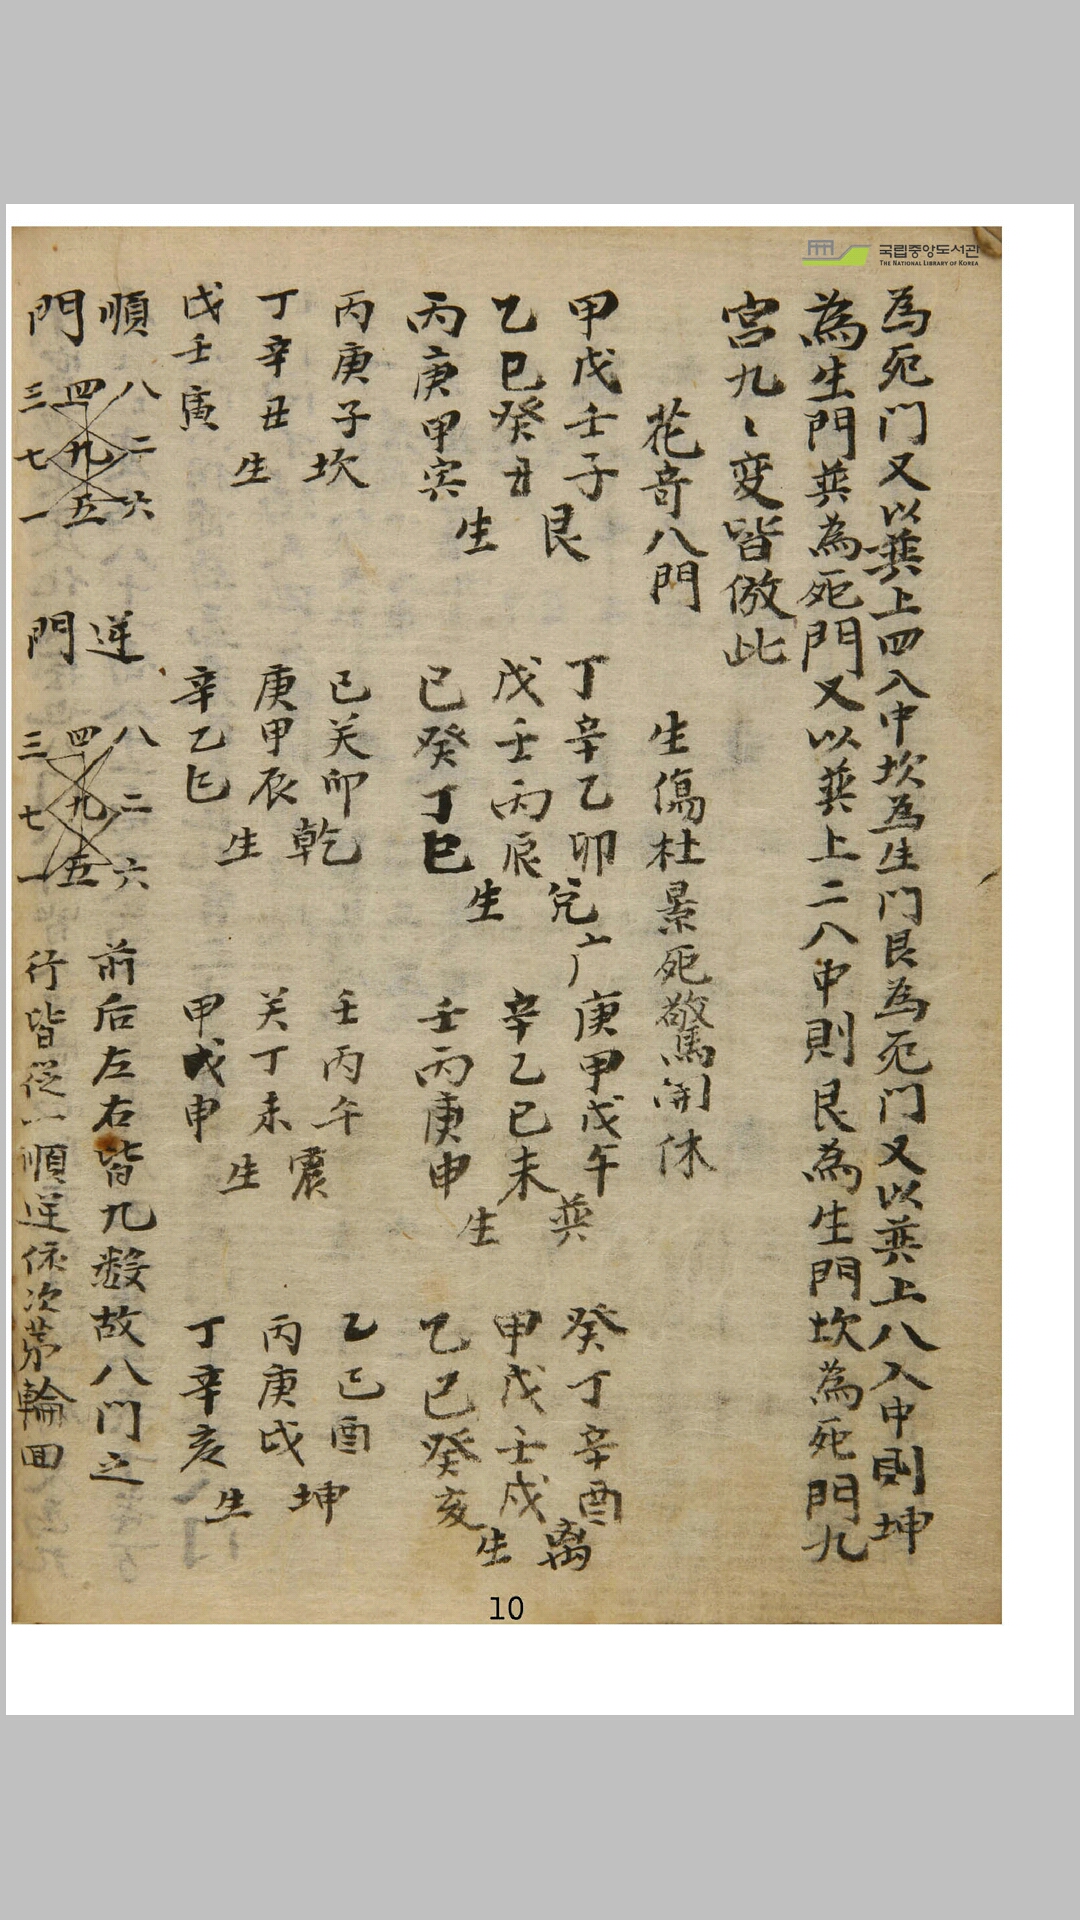 국립중앙도서관
THE NATIONAL LIBRARY OF KOREA
為死门又以巽上四八中坎為生门艮為死门又以巽上八入中則坤
為生門巽為死門又以巽上二八中則艮為生門坎為死門九
宮九〻变皆倣此
花奇八門 生傷杜景死驚開休
甲戊壬子 艮 丁辛乙卯 兌 庚甲戊午 巽 癸丁辛酉 离
乙巳癸丑 生 戊壬丙辰 生 辛乙已未 生 甲戊壬戌 生
丙庚甲寅 己癸丁巳 壬丙庚申 乙己癸亥
丙庚子 坎 已关卯 乾 壬丙午 震 乙己酉 坤
丁辛丑 生 庚甲辰 生 关丁未 生 丙庚戌 生
戊壬寅 辛乙巳 甲戊申 丁辛亥
順 八二六 逆 八二六 前后左右皆九数故八门之
門 四九五 三七一 門 四九五 三七一 行皆從一順逆依次苐輪回
10